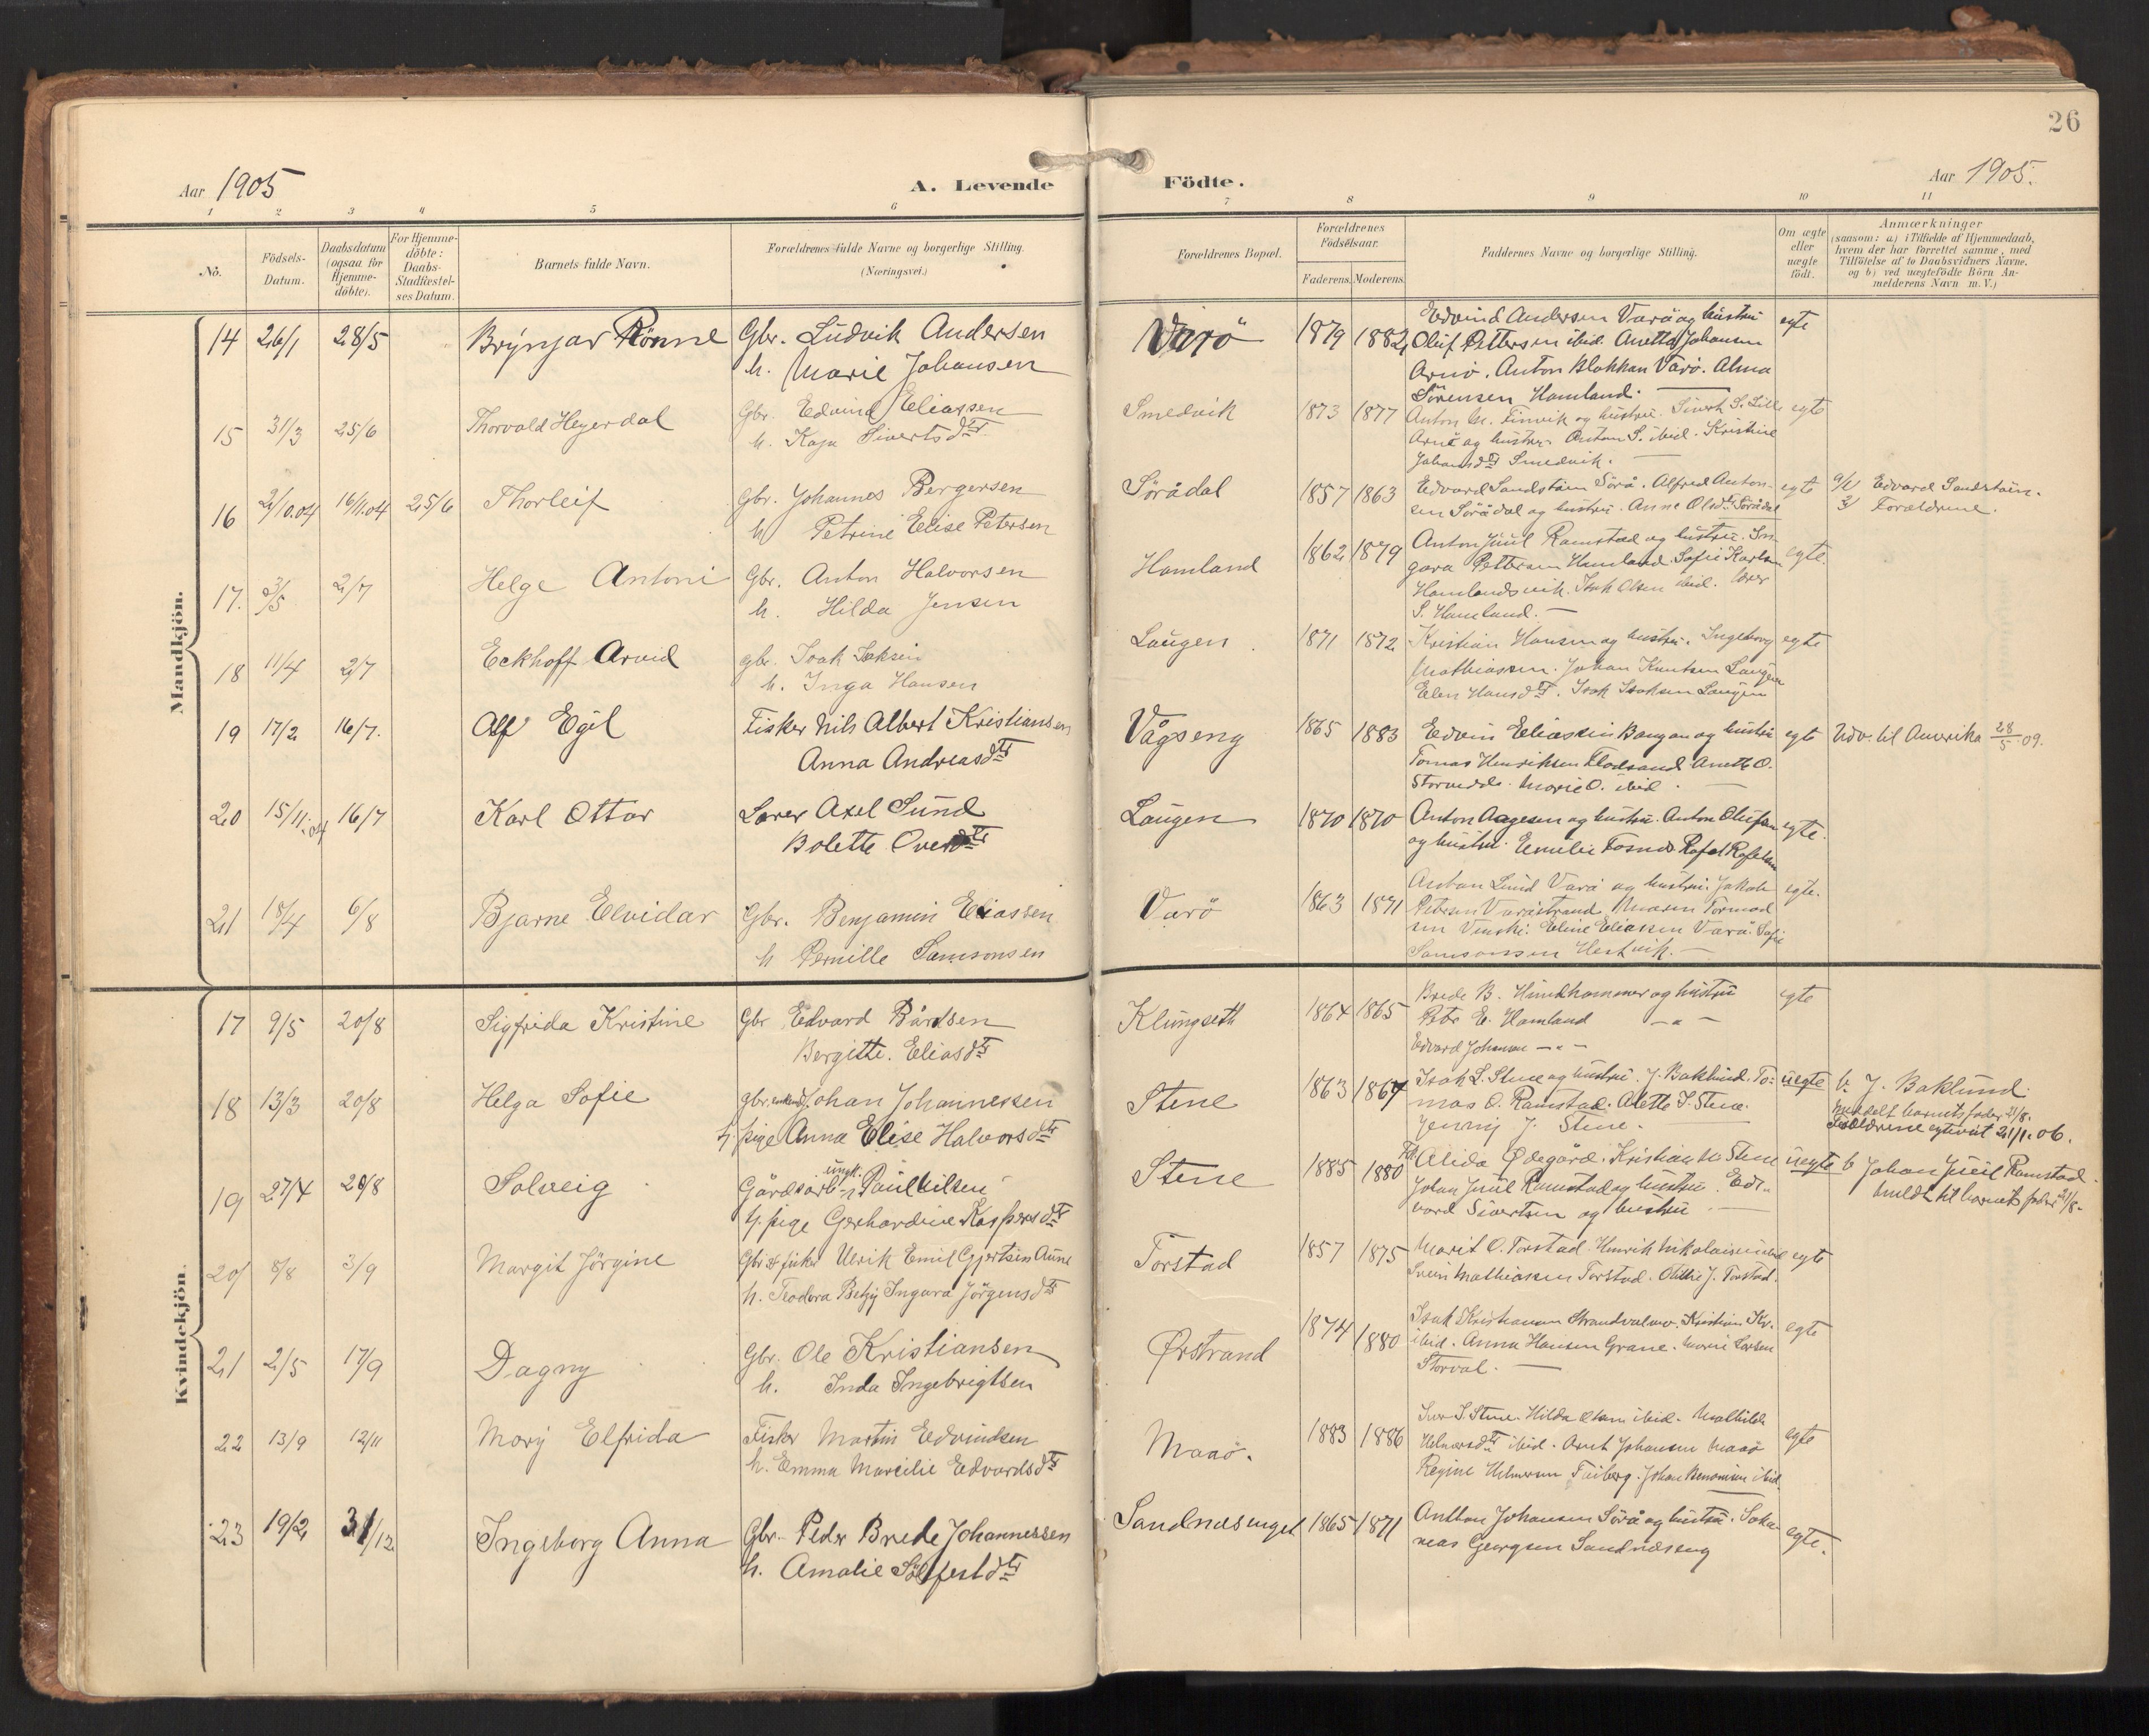 26
Aar 1905
A. Levende
Födte.
Aar 1905.
1 2 3 4 5 6 7 8 9 10 11
No.
Födsels-
Datum.
Daabsdatum
(ogsaa for
Hjemme-
döbte).
For Hjemme-
döbte:
Daabs-
Stadfæstel-
ses Datum.
Barnets fulde Navn.
Forældrenes fulde Navne og borgerlige Stilling.
(Næringsvei.)
Forældrenes Bopæl.
Forældrenes
Födselsaar.
Faderens. Moderens.
Faddernes Navne og borgerlige Stilling.
Om ægte
eller
uægte
födt.
Anmærkninger
(saasom: a) i Tilfælde af Hjemmedaab,
hvem der har forrettet samme, med
Tilföielse af to Daabsvidners Navne.
og b) ved uægtefödte Börn An-
melderens Navn m. V.)
Mandkjön.
14 26/1 28/5 Brynjar Rönne Gbr. Ludvik Andersen
h. Marie Johansen
Varö 1879 1882
Edvind Andersen Varö og hustru
Oluf Pettersen ibid. Anetta Johansen
Arnö. Anton Blakkan Varö. Alma
Sörensen Hamland.
egte
15 31/3 25/6 Thorvald Heyerdal Gbr. Edvind Eliassen
h. Kaja Sivertsdtr
Smedvik 1873 1877
Anton M. Finvik og hustru. Sivert S. Lille
Arnö og hustru. Antom S. ibid. Kristine
Johansdtr Smedvik.
egte
16 2/10.04 16/11.04 25/6 Thorleif Gbr. Johannes Bergersen
h Petrine Elise Petersen
Sörådal 1857 1863
Edvard Sandstöin Sörå. Alfred Anton-
sen Sörådal og hustru. Anne Olsdtr Sörådal
egte
Edvard Sandstöin.
Forældrene.
17. 3/5 2/7 Helge Antoni Gbr. Anton Halvorsen
h. Hilda Jensen
Hamland 1862 1879
Anton Juul Ramstad og hustru. In-
gara Pettersen Hamland. Sofie Karlsen
Hamlandsvik. Isak Olsen ibid.
S. Hamland.
egte.
18 11/4 2/7 Eckhoff Arvid gbr. Isak Isaksen
h. Inga Hansen
Laugen 1871 1872
Kristian Hansen og hustru. Ingeborg
Mathiassen. Johan Knutsen Laugen
Elen Hansdtr. Isak Isaksen Laugen
egte
19 17/2 16/7. Alf Egil Fisker Nils Albert Kristiansen
Anna Andreasdtr
Vågseng 1865 1883
Edvin Eliassen Baugan og hustru
Tomas Henriksen Flodsand Anette O.
Marie O. ibid.
egte
Udv. til Amerika 28/5 09.
20 15/11.04 16/7 Karl Ottar Lærer Axel Sund
Bolette Ovedtr
Laugen 1870 1870
Anton Aagesen og hustru. Anton Olufsen
og hustru. Emilie Fosnes Rafal Rafelsen
egte.
21 18/4 6/8 Bjarne Elvidar Gbr. Benjamin Eliassen
h Pernille Samsonsen
Varö 1863 1871
Anton Lund Varö og hustru. Jakob
Petersen Varöstrand. Maren Tormod
sen Vinski. Eline Eliassen Varö. Sofie
Samsonsen Hestvik.
egte.
Kvindekjön.
17 9/5 20/8 Sigfrida Kristine Gbr Edvard Bårdsen
Bergitte. Eliasdtr
Klungseth 1864 1865
Brede B. Hundhammer og hustru
Petr E. Hamland - " -
Edvard Johansen - " -
egte
18 13/3 20/8 Helga Sofie gbr. enkem. Johan Johannessen
h pige Anna Elise Halvorsdtr
Stene 1863 1867
Isak L. Stene og hustru. J. Baklund. To-
mas O. Ramstad. Alette I. Stene.
Jenny J. Stene.
uegte
b. J. Baklund.
Meddelt barnets fader 21/8.
Forældrene egteviet 21/1.06.
19 27/4 20/8 Solveig Gårdsarb. ungk. Paul Nilsen
h pige Gerhardine Kaspersdtr
Stene 1885 1880
Alida Ødegård. Kristian M. Stene
Johan Juul Ramstad og hustru. Ed-
vard Sivertsen og hustru
uegte
b Johan Juul Ramstad.
Meldt til barnets fader 21/8.
20 8/8 3/9 Margit Jörgine Gbr & fisker Ulrik Emil Gjertsen Aune
h. Teodora Betzy Ingara Jörgensdtr
Torstad 1857 1875
Marit O. Torstad. Henrik Nikolaisen ibid
Svein Mathiassen Torstad. Otilie J. Torstad.
egte
21 2/5 17/9 Dagny Gbr. Ole Kristiansen
h. Inda Ingebrigtsen
Ørstrand 1874 1880
Isak Kristiansen Strandvalen. Kristian Kr.
ibid. Anna Hansen Grane. Marie Larsen
Storval.
egte
22 13/9 12/11 Mary Elfrida Fisker Martin Edvindsen
h. Emma Marcilie Edvardsdtr
Maaö. 1883 1886
Iver I Stene. Hilda Olsen ibid. Mathilde
Helmersdtr ibid. Arnt Johansen Maaö
Regine Helmersen Fuiberg. Johan Benonisen ibid.
egte
23 19/2 31/12 Ingeborg Anna Gbr. Peder Brede Johannessen
h. Amalie Sölfestdtr
Sandnæsenget 1865 1871
Anthon Johansen Sörå og hustru. Saka-
rias Georgsen Sandnæseng
egte.